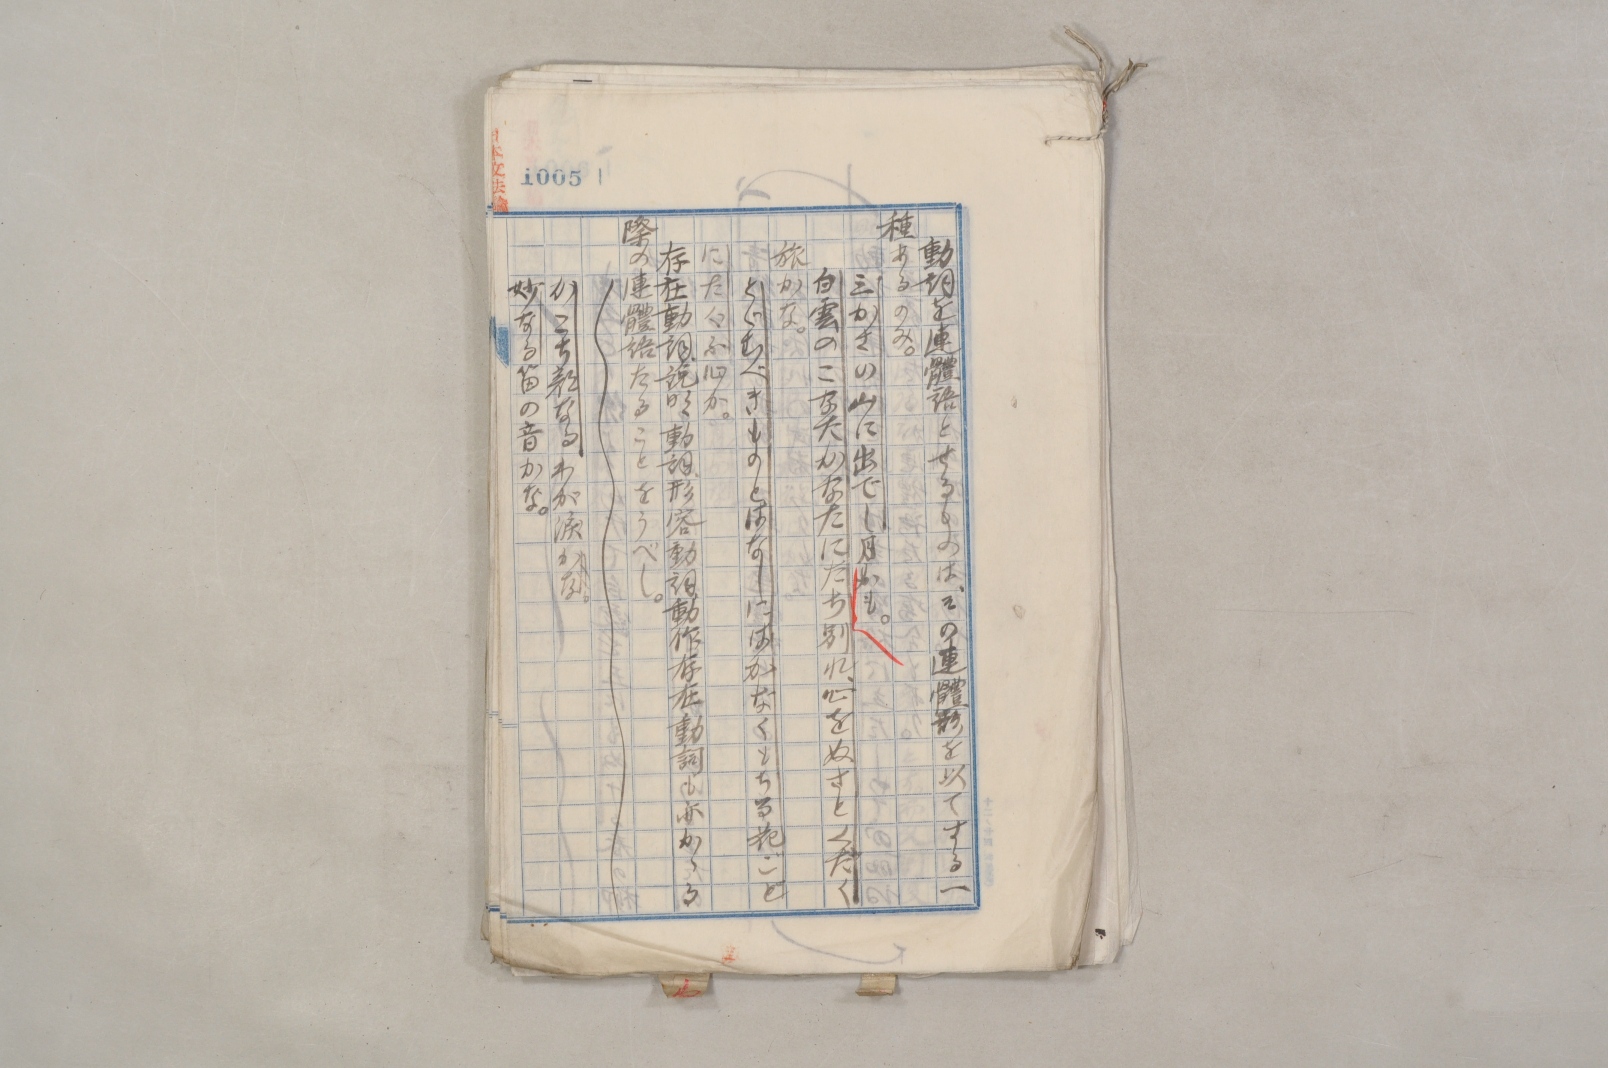 動詞を連體語とせるものは、その連體形を以てする一
種あるのみ。
三かさの山に出でし月かも。
白雲のこなたかなたにたち別れ、心をぬさとくだく
旅かな。
とぐむべきものとはなしにはかなくもちる花ごと
にたぐふ心か。
存在動詞説明動詞形容動詞動作存在動詞も亦かゝる
際の連體語たることをうべし。
かこち顔なるわが涙かな。
妙なる笛の音かな。
1005
日本文法論